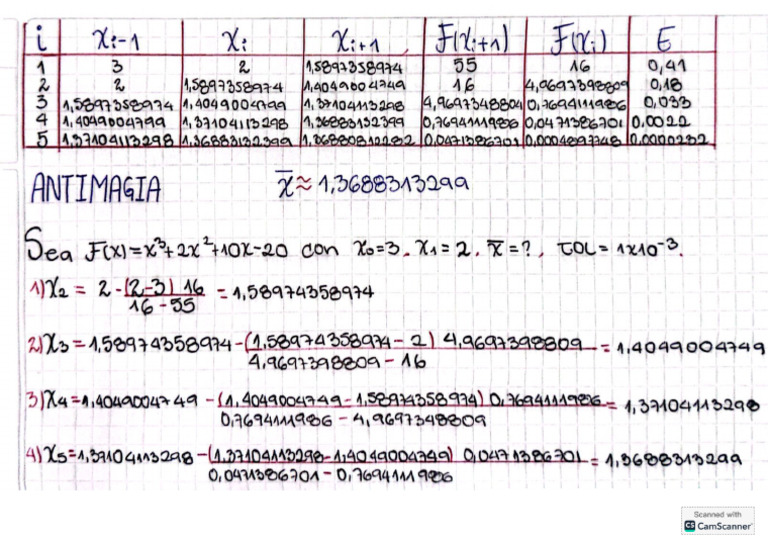 i xi-1 xi xi+1 F(xi+1) F(xi) E
1 3 2 1,5897358974 55 16 0,41
2 2 1,5897358974 1,4049004749 16 4,9697398809 0,18
3 1,5897358974 1,4049004799 1,37104113298 4,9697348804 0,7694111986 0,033
4 1,4049004799 1,37104113298 1,36883132399 0,7694111986 0,0471386701 0,0022
5 1,37104113298 1,36883132399 1,36880810282 0,0471386701 0,0004897748 0,0000232
ANTIMAGIA x̄ ≈ 1,3688313299
Sea F(x)=x³+2x²+10x-20 con x₀=3, x₁=2, x̄=?, TOL=1x10⁻³.
1) x₂ = 2 - (2-3) 16 = 1,58974358974
16 - 55
2) x₃ = 1,58974358974 - (1,589743358974 - 2) 4,9697398809 = 1,4049004749
4,9697398809 - 16
3) x₄ = 1,4049004749 - (1,4049004749 - 1,58974358974) 0,7694111986 = 1,37104113298
0,7694111986 - 4,9697348809
4) x₅ = 1,37104113298 - (1,37104113298 - 1,4049004749) 0,0471386701 = 1,3688313299
0,0471386701 - 0,7694111986
Scanned with
CS CamScanner